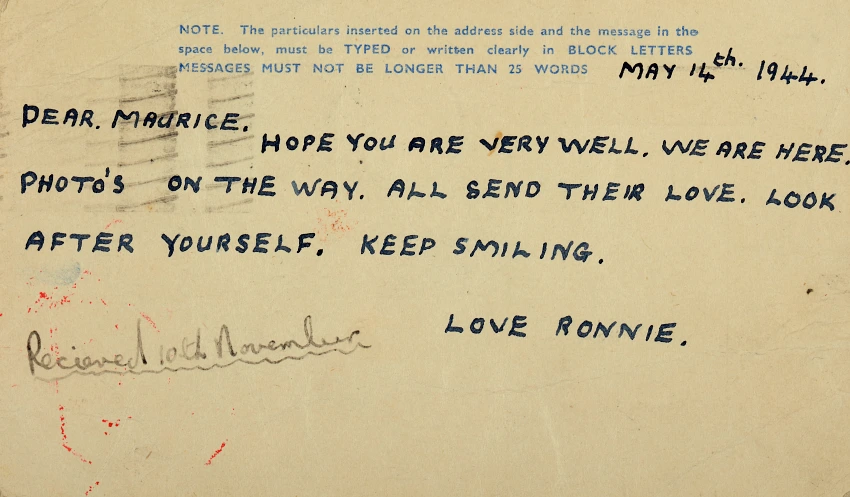 NOTE. The particulars inserted on the address side and the message in the
space below, must be TYPED or written clearly in BLOCK LETTERS
MESSAGES MUST NOT BE LONGER THAN 25 WORDS
MAY 14th. 1944.
DEAR. MAURICE.
HOPE YOU ARE VERY WELL. WE ARE HERE.
PHOTO'S ON THE WAY. ALL SEND THEIR LOVE. LOOK
AFTER YOURSELF. KEEP SMILING.
LOVE RONNIE.
Recieved 10th November